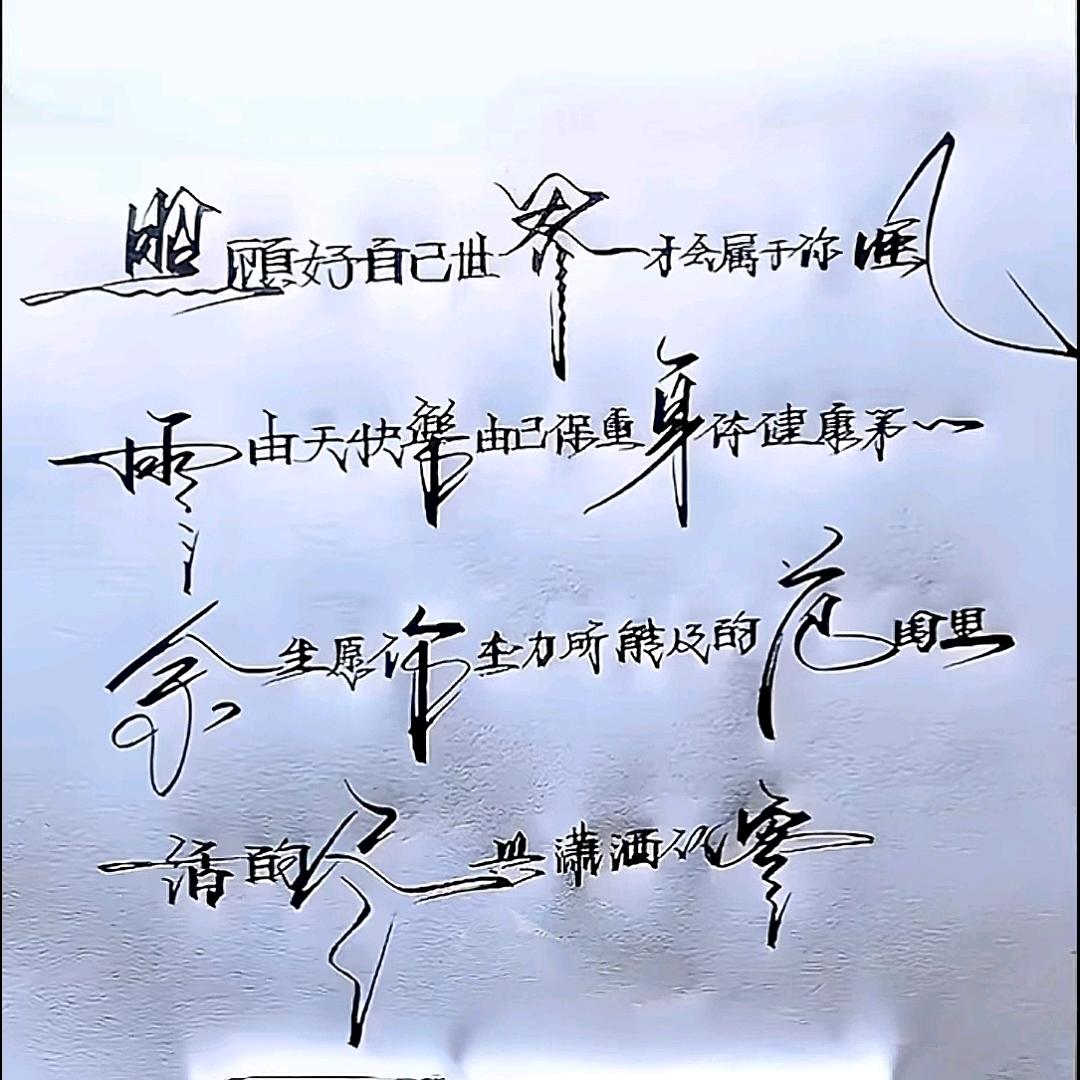 照顾好自己世界才会属于你風
雨由天快樂由己保重身体健康第一
余生愿你在力所能及的范围里
活的尽兴潇洒从容